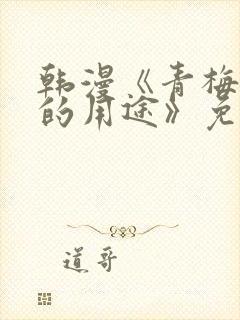 韩漫《青梅
的用途》免
道哥